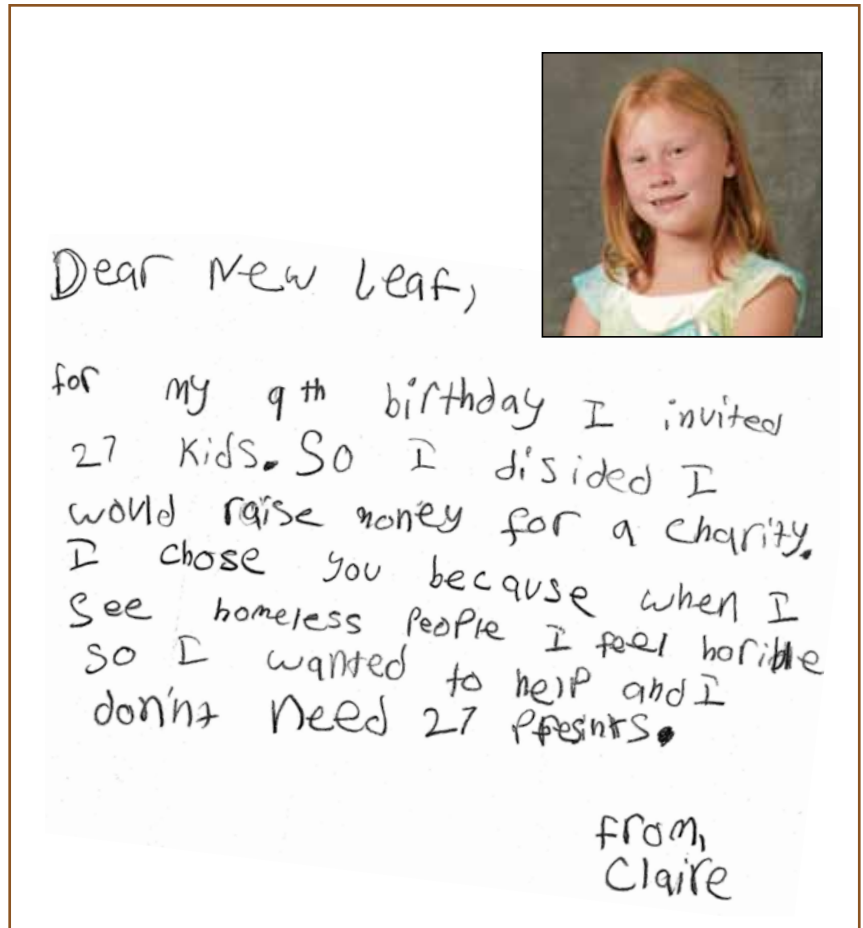 Dear New Leaf,
for my 9th birthday I invited
27 Kids. So I disided I
would raise money for a charity.
I chose you because when I
See homeless people I feel horible
so I wanted to help and I
don'nt need 27 presints.
from,
Claire